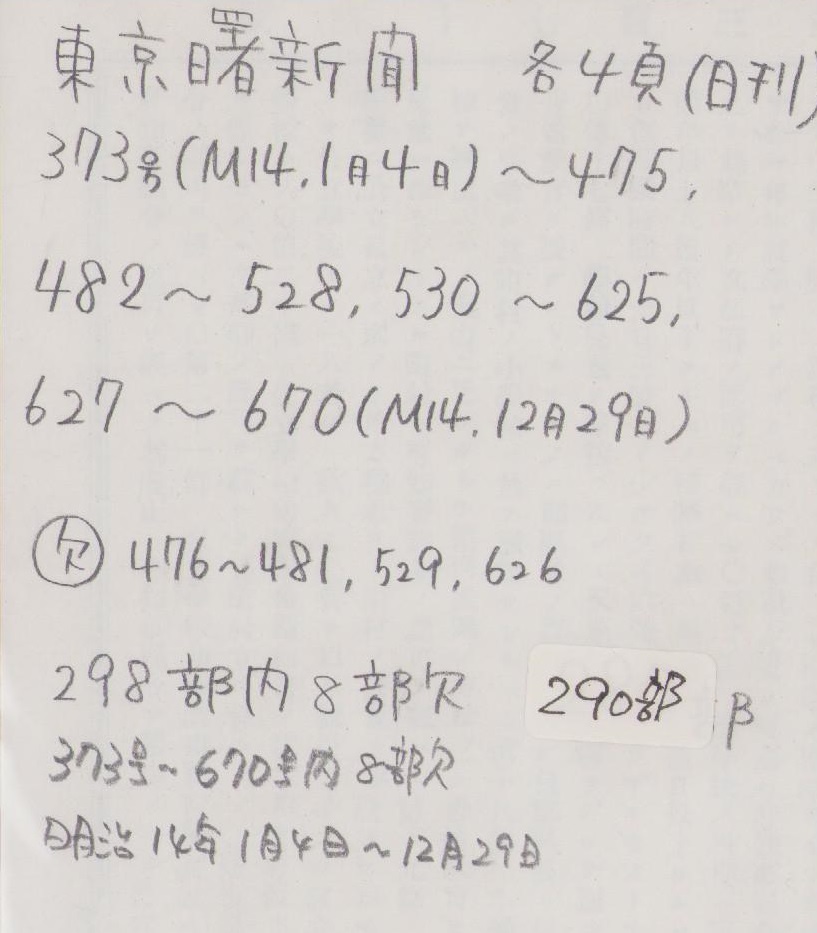 東京曙新聞 各4頁(日刊)
373号(M14.1月4日)～475,
482～528, 530～625,
627～670(M14.12月29日)
欠 476～481, 529, 626
298部内8部欠 290部 β
373号～670号内8部欠
明治14年1月4日～12月29日